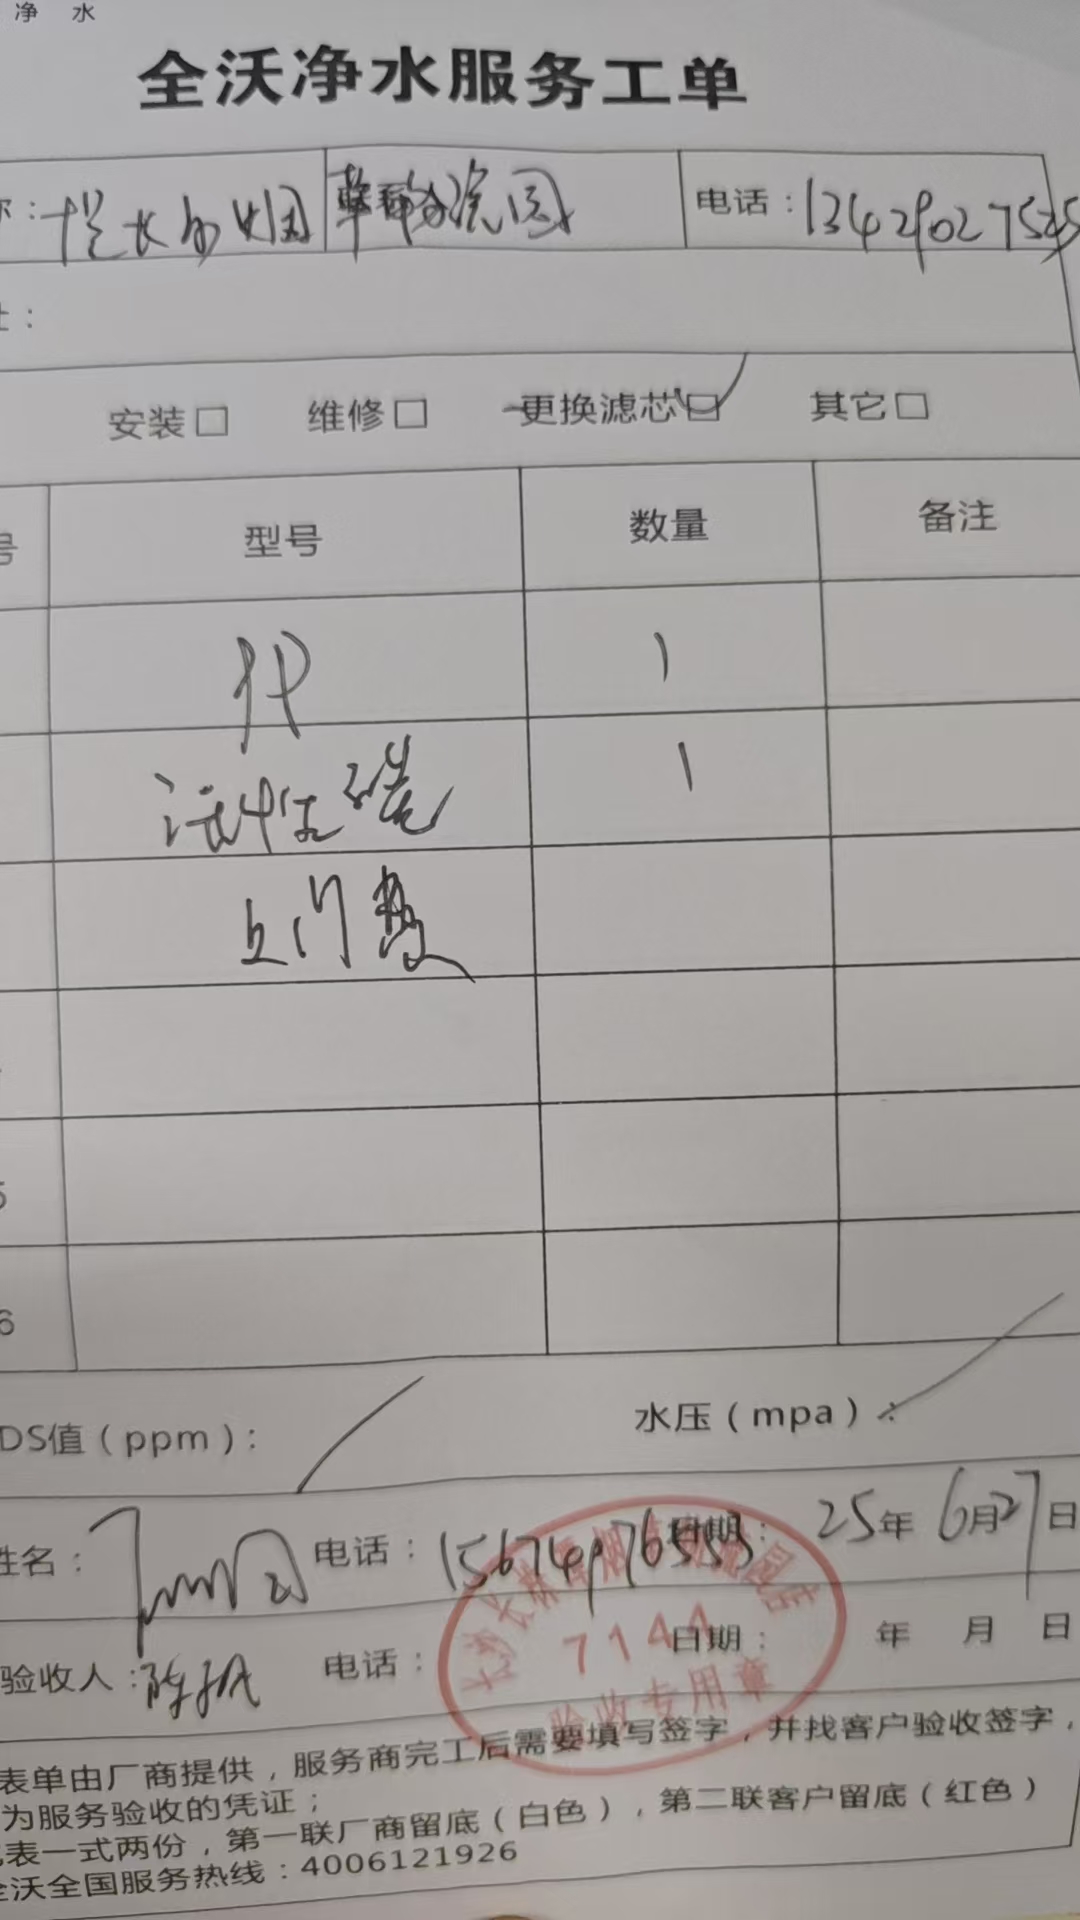 净 水
全沃净水服务工单
电话：13429027525
安装□ 维修□ 更换滤芯□ 其它□
号 型号 数量 备注
PP 1
活性碳 1
上门费
5
6
DS值（ppm）：
水压（mpa）：
姓名： 电话：15674976553 日期：25年6月27日
验收人：陈 电话： 日期： 年 月 日
7144
验收专用章
表单由厂商提供，服务商完工后需要填写签字，并找客户验收签字，
为服务验收的凭证；
表一式两份，第一联厂商留底（白色），第二联客户留底（红色）
全沃全国服务热线：4006121926